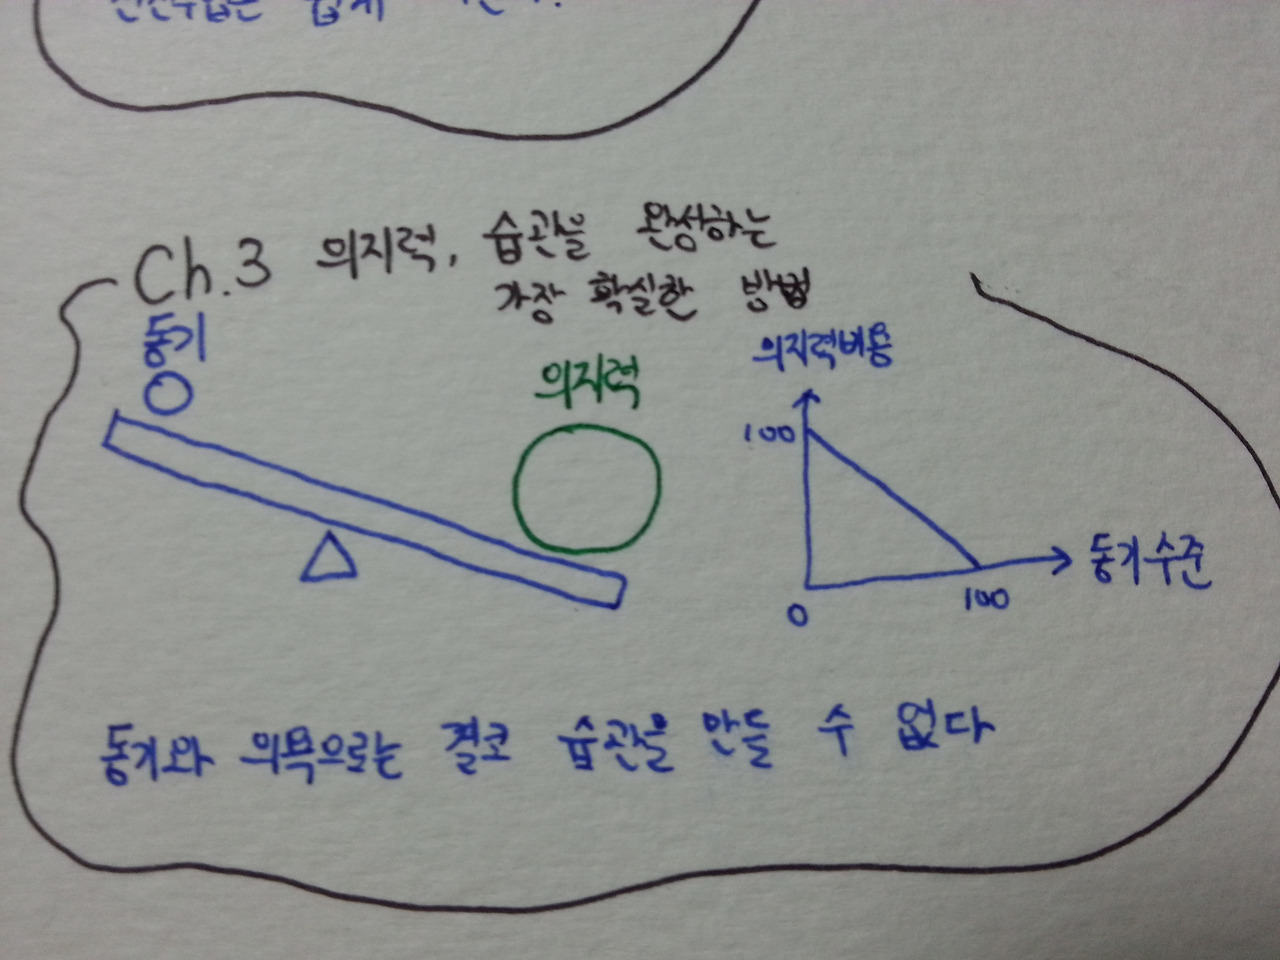 Ch.3 의지력, 습관을 완성하는
가장 확실한 방법
동기
의지력
의지력비용
100
0
100
동기수준
동기와 의욕으로는 결코 습관을 만들 수 없다